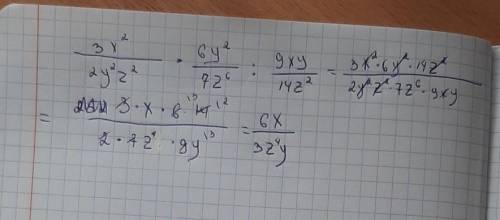 3x²/2y²z² · 6y²/7z⁶ : 9xy/14z² = 3x²·6y²·14z²/2y²z²·7z⁶·9xy
= 3·x·6·14/2·7z⁶·9y = 6x/3z⁴y